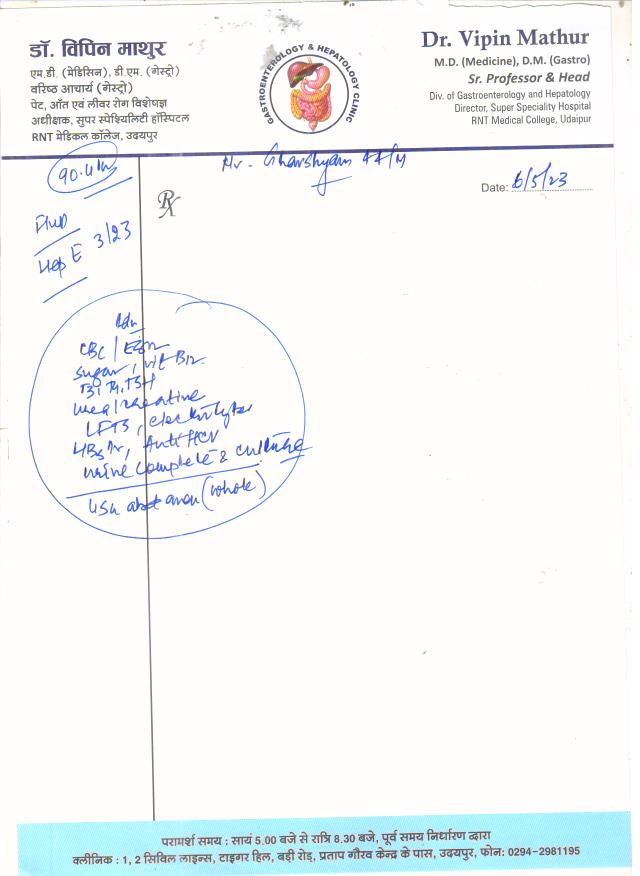 डॉ. विपिन माथुर
एम.डी. (मेडिसिन), डी.एम. (गेस्ट्रो)
वरिष्ठ आचार्य (गेस्ट्रो)
पेट, आँत एवं लीवर रोग विशेषज्ञ
अधीक्षक, सुपर स्पेश्यिलिटी हॉस्पिटल
RNT मेडिकल कॉलेज, उदयपुर
GASTROENTEROLOGY & HEPATOLOGY CLINIC
Dr. Vipin Mathur
M.D. (Medicine), D.M. (Gastro)
Sr. Professor & Head
Div. of Gastroenterology and Hepatology
Director, Super Speciality Hospital
RNT Medical College, Udaipur
Mr. Ghanshyam 44/M
Date: 6/5/23
90.4 kg
Rx
Hep E 3/23
Adv
CBC / ESR
Sugar, Vit B12
T3, T4, TSH
Urea/creatine
LFTs, electrolytes
HBsAg, Anti HCV
Urine complete & culture
USG abdomen (whole)
परामर्श समय : सायं 5.00 बजे से रात्रि 8.30 बजे, पूर्व समय निर्धारण द्वारा
क्लीनिक : 1, 2 सिविल लाइन्स, टाइगर हिल, बड़ी रोड़, प्रताप गौरव केन्द्र के पास, उदयपुर, फोन: 0294-2981195